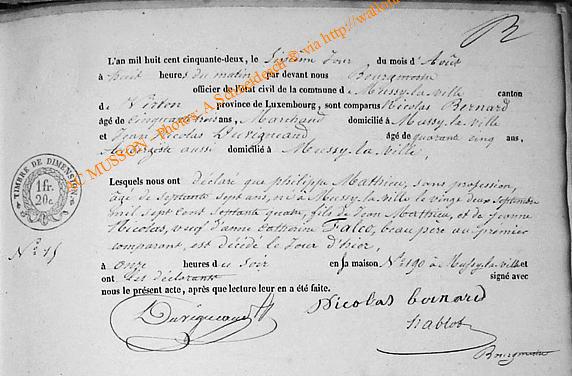 R
L'an mil huit cent cinquante-deux, le Sixième Jour du mois d'Août
à huit heures du matin, par devant nous Bourgmestre
officier de l'état civil de la commune de Mussy-la-ville canton
de Virton province de Luxembourg, sont comparus Nicolas Bernard
âgé de cinquante trois ans, Marchand domicilié à Mussy-la-ville
et Jean Nicolas Duvigneaud âgé de quarante cinq ans,
aussi domicilié à Mussy-la-ville,
Lesquels nous ont déclaré que philippe Mathieu, sans profession,
âgé de Septante Sept ans, né à Mussy-la-ville le vingt deux Septembre
mil sept Cent Septante quatre, fils de Jean Mathieu, et de Jeanne
Nicolas, veuf d'anne Catherine Falco, beau père au premier
comparant, est décédé le Jour d'hier,
à onze heures du soir en sa maison N° 190 à Mussy-la-ville et
ont les déclarants signé avec
nous le présent acte, après que lecture leur en a été faite.
Duvigneaud
Nicolas bernard
Bourgmestre
TIMBRE DE DIMENSION
1 fr.
20 c.
N° 15
MUSSON - Photos: A Schleidesch ® via http://wallon